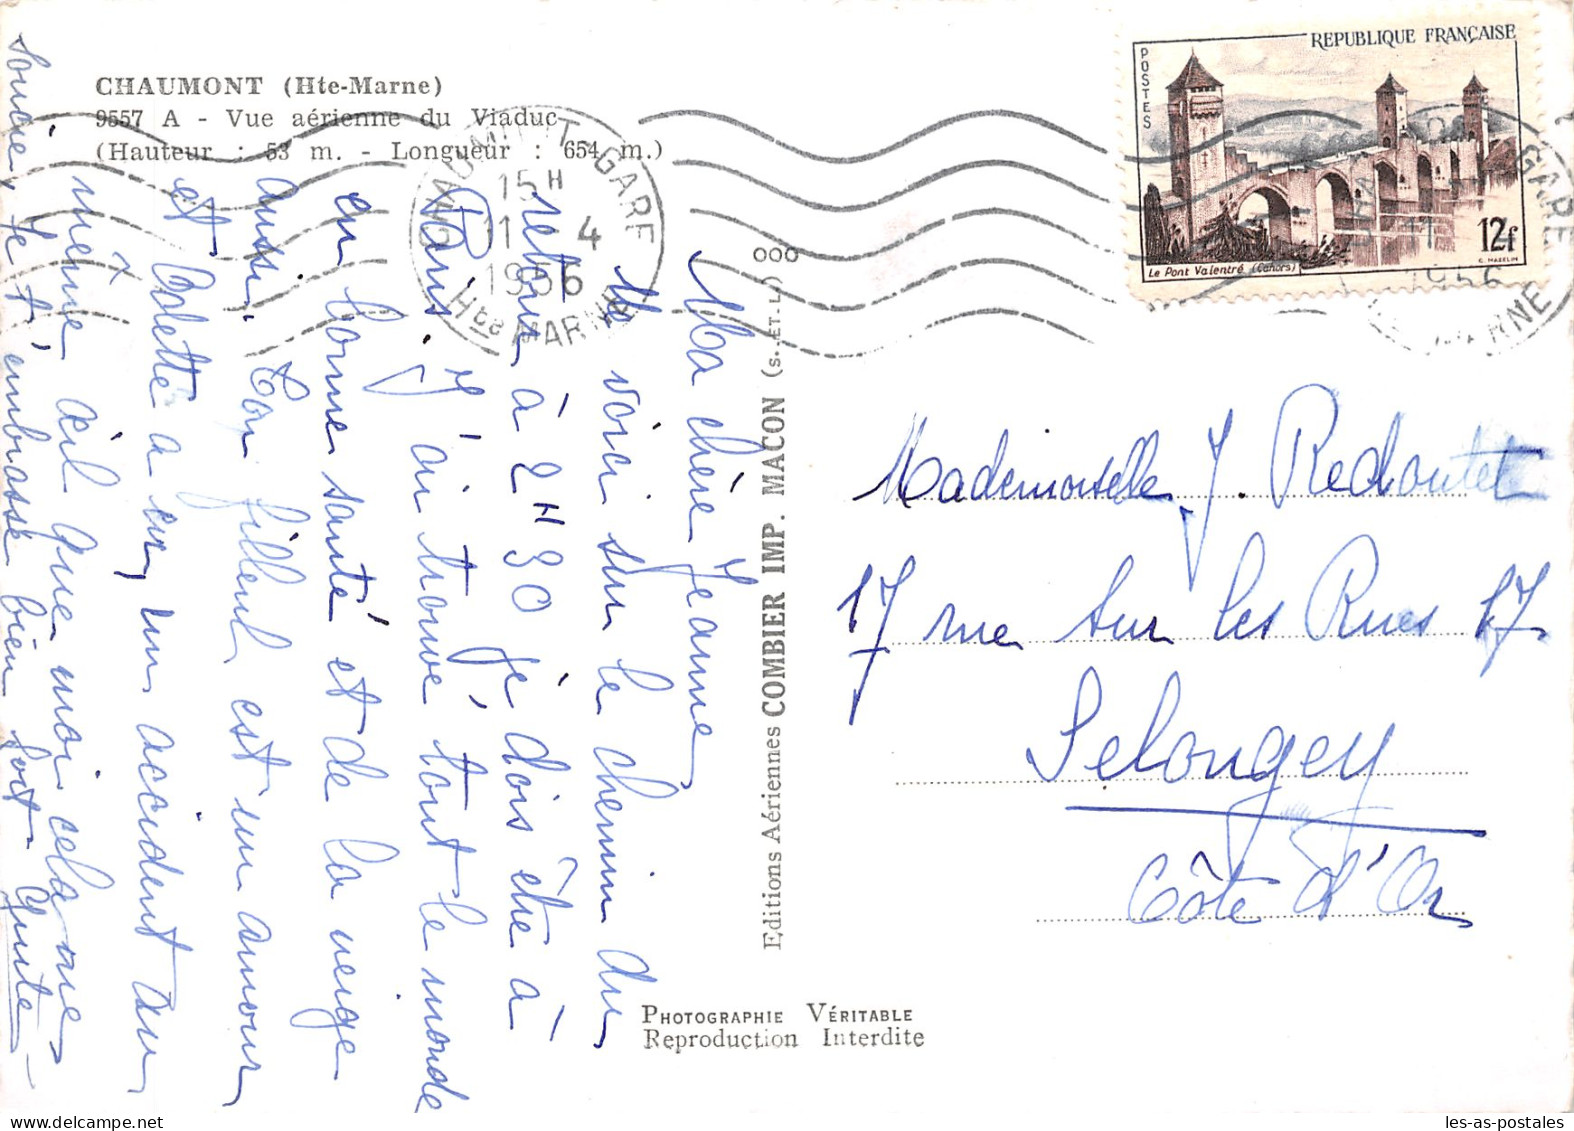 CHAUMONT (Hte-Marne)
9557 A - Vue aérienne du Viaduc
(Hauteur : 53 m. - Longueur : 654 m.)
CHAUMONT GARE
15 H
11 4
1956
Hte MARNE
REPUBLIQUE FRANÇAISE
POSTES
12f
Le Pont Valentré (Cahors)
C. MAZELIN
GARE
11
1956
MARNE
Ma chère Jeanne,
Me voici sur le chemin du
retour à 2H30 je dois être à
Paris. J'ai trouvé tout le monde
en bonne santé et de la neige
aussi. Ton filleul est un amour
et Colette a eu, un accident au
même œil que moi cela me
soucie, je t'embrasse bien fort
Editions Aériennes COMBIER IMP. MACON (S.-ET-L.) ooo
Mademoiselle J. Redoutet
17 rue sur les Rues 17
Selongey
Côte d'Or
PHOTOGRAPHIE VÉRITABLE
Reproduction Interdite
les-as-postales